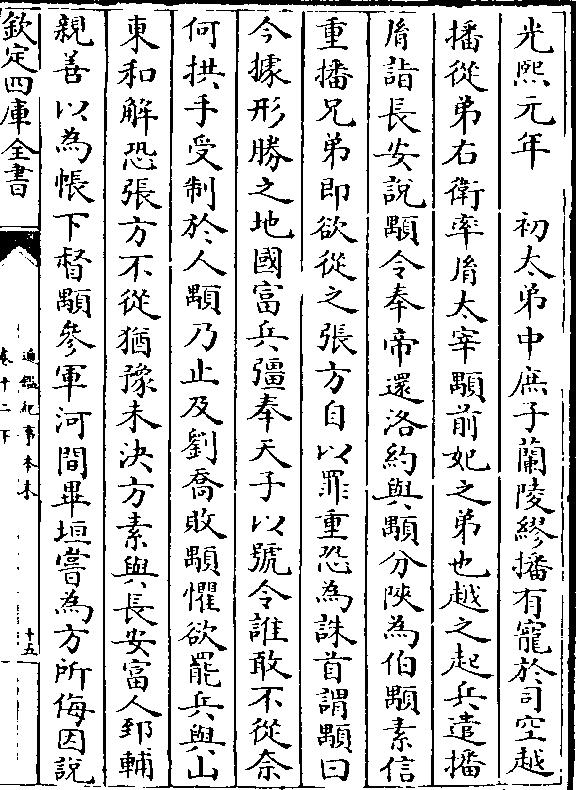 光熙元年　初太弟中庶子蘭陵繆播有寵於司空越
播從弟右衛率脩太宰顒前妃之弟也越之起兵遣播
脩詣長安說顒令奉帝還洛約與顒分陜為伯顒素信
重播兄弟即欲從之張方自以罪重恐為誅首謂顒曰
今據形勝之地國富兵彊奉天子以號令誰敢不從奈
何拱手受制於人顒乃止及劉喬敗顒懼欲罷兵與山
東和解恐張方不從猶豫未決方素與長安富人郅輔
親善以為帳下督顒參軍河間畢垣嘗為方所侮因說
欽定四庫全書
通鑑紀事本末
卷十二下
十五